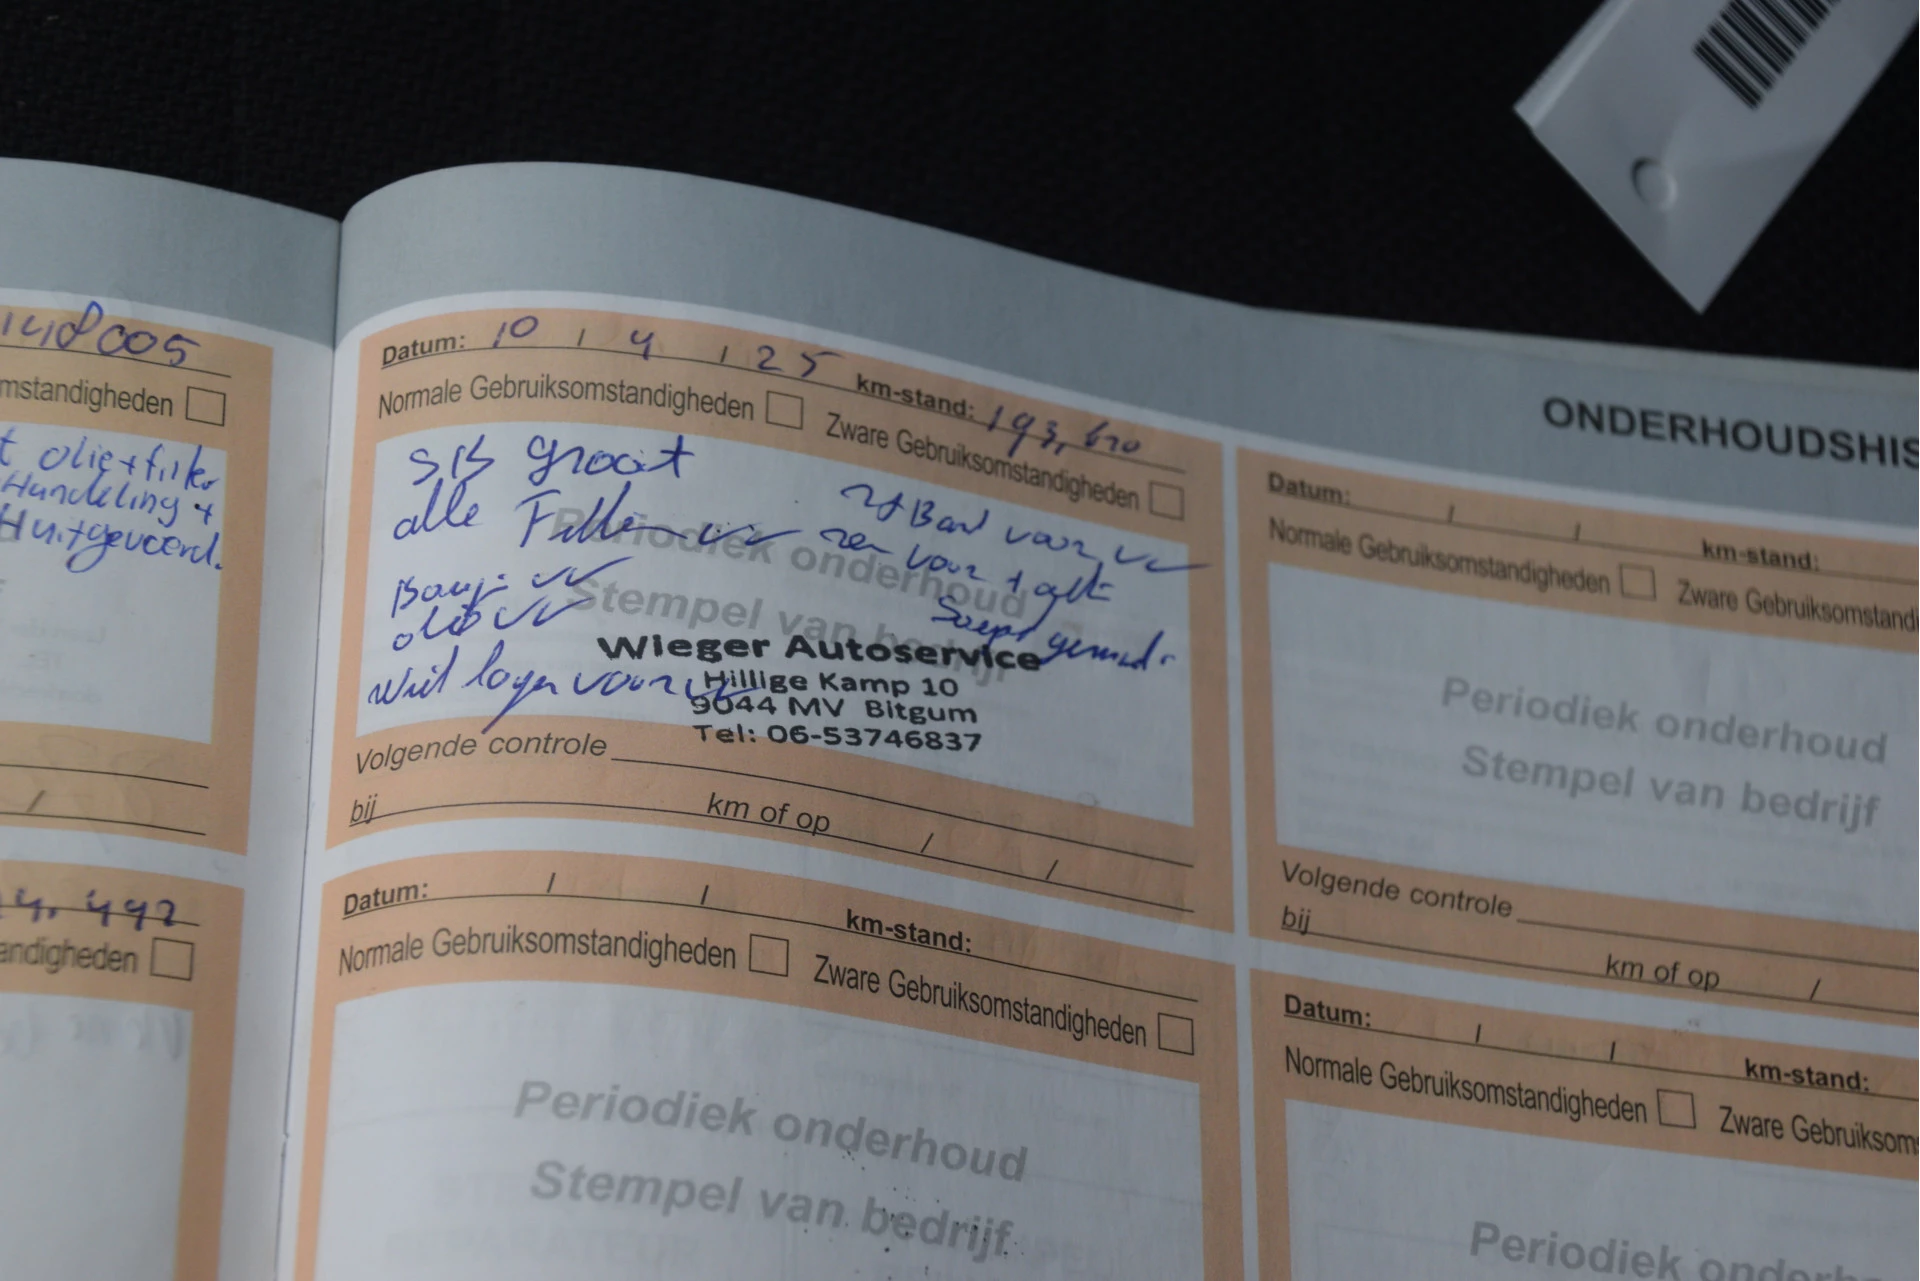 148005
mstandigheden
t olie+filter
Handeling +
Huitgevoerd.
/
4.492
andigheden
Datum: 10 / 4 / 25 km-stand: 193,610
Normale Gebruiksomstandigheden Zware Gebruiksomstandigheden
SB groot
alle
olie
voor
Periodiek onderhoud
Stempel van bedrijf
Wieger Autoservice
Hillige Kamp 10
9044 MV Bitgum
Tel: 06-53746837
Volgende controle
bij km of op / /
Datum: / / km-stand:
Normale Gebruiksomstandigheden Zware Gebruiksomstandigheden
Periodiek onderhoud
Stempel van bedrijf
ONDERHOUDSHIS
Datum: / / km-stand:
Normale Gebruiksomstandigheden Zware Gebruiksomstandi
Periodiek onderhoud
Stempel van bedrijf
Volgende controle
bij km of op /
Datum: / / km-stand:
Normale Gebruiksomstandigheden Zware Gebruiksom
Periodiek onderh